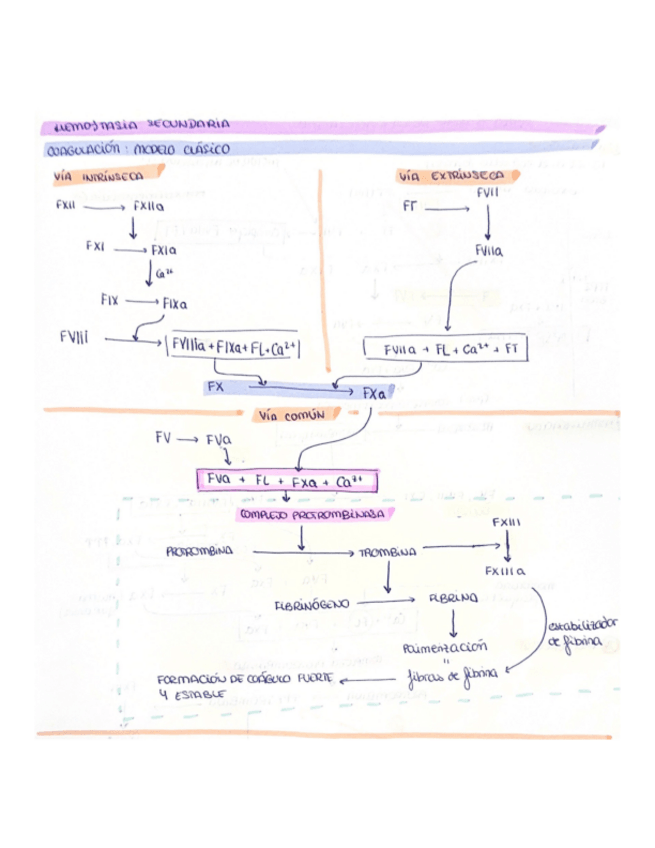 HEMOSTASIA SECUNDARIA
COAGULACIÓN: MODELO CLÁSICO
VÍA INTRÍNSECA
FXII → FXIIa
FXI → FXIa
Ca²⁺
FIX → FIXa
FVIII → FVIIIa + FIXa + FL + Ca²⁺
VÍA EXTRÍNSECA
FVII
FT →
FVIIa
FVIIa + FL + Ca²⁺ + FT
FX → FXa
VÍA COMÚN
FV → FVa
FVa + FL + FXa + Ca²⁺
COMPLEJO PROTROMBINASA
FXIII
PROTROMBINA → TROMBINA →
FXIIIa
FIBRINÓGENO → FIBRINA
estabilizador
de fibrina
Polimerización
"
FORMACIÓN DE COÁGULO FUERTE ← fibras de fibrina
Y ESTABLE